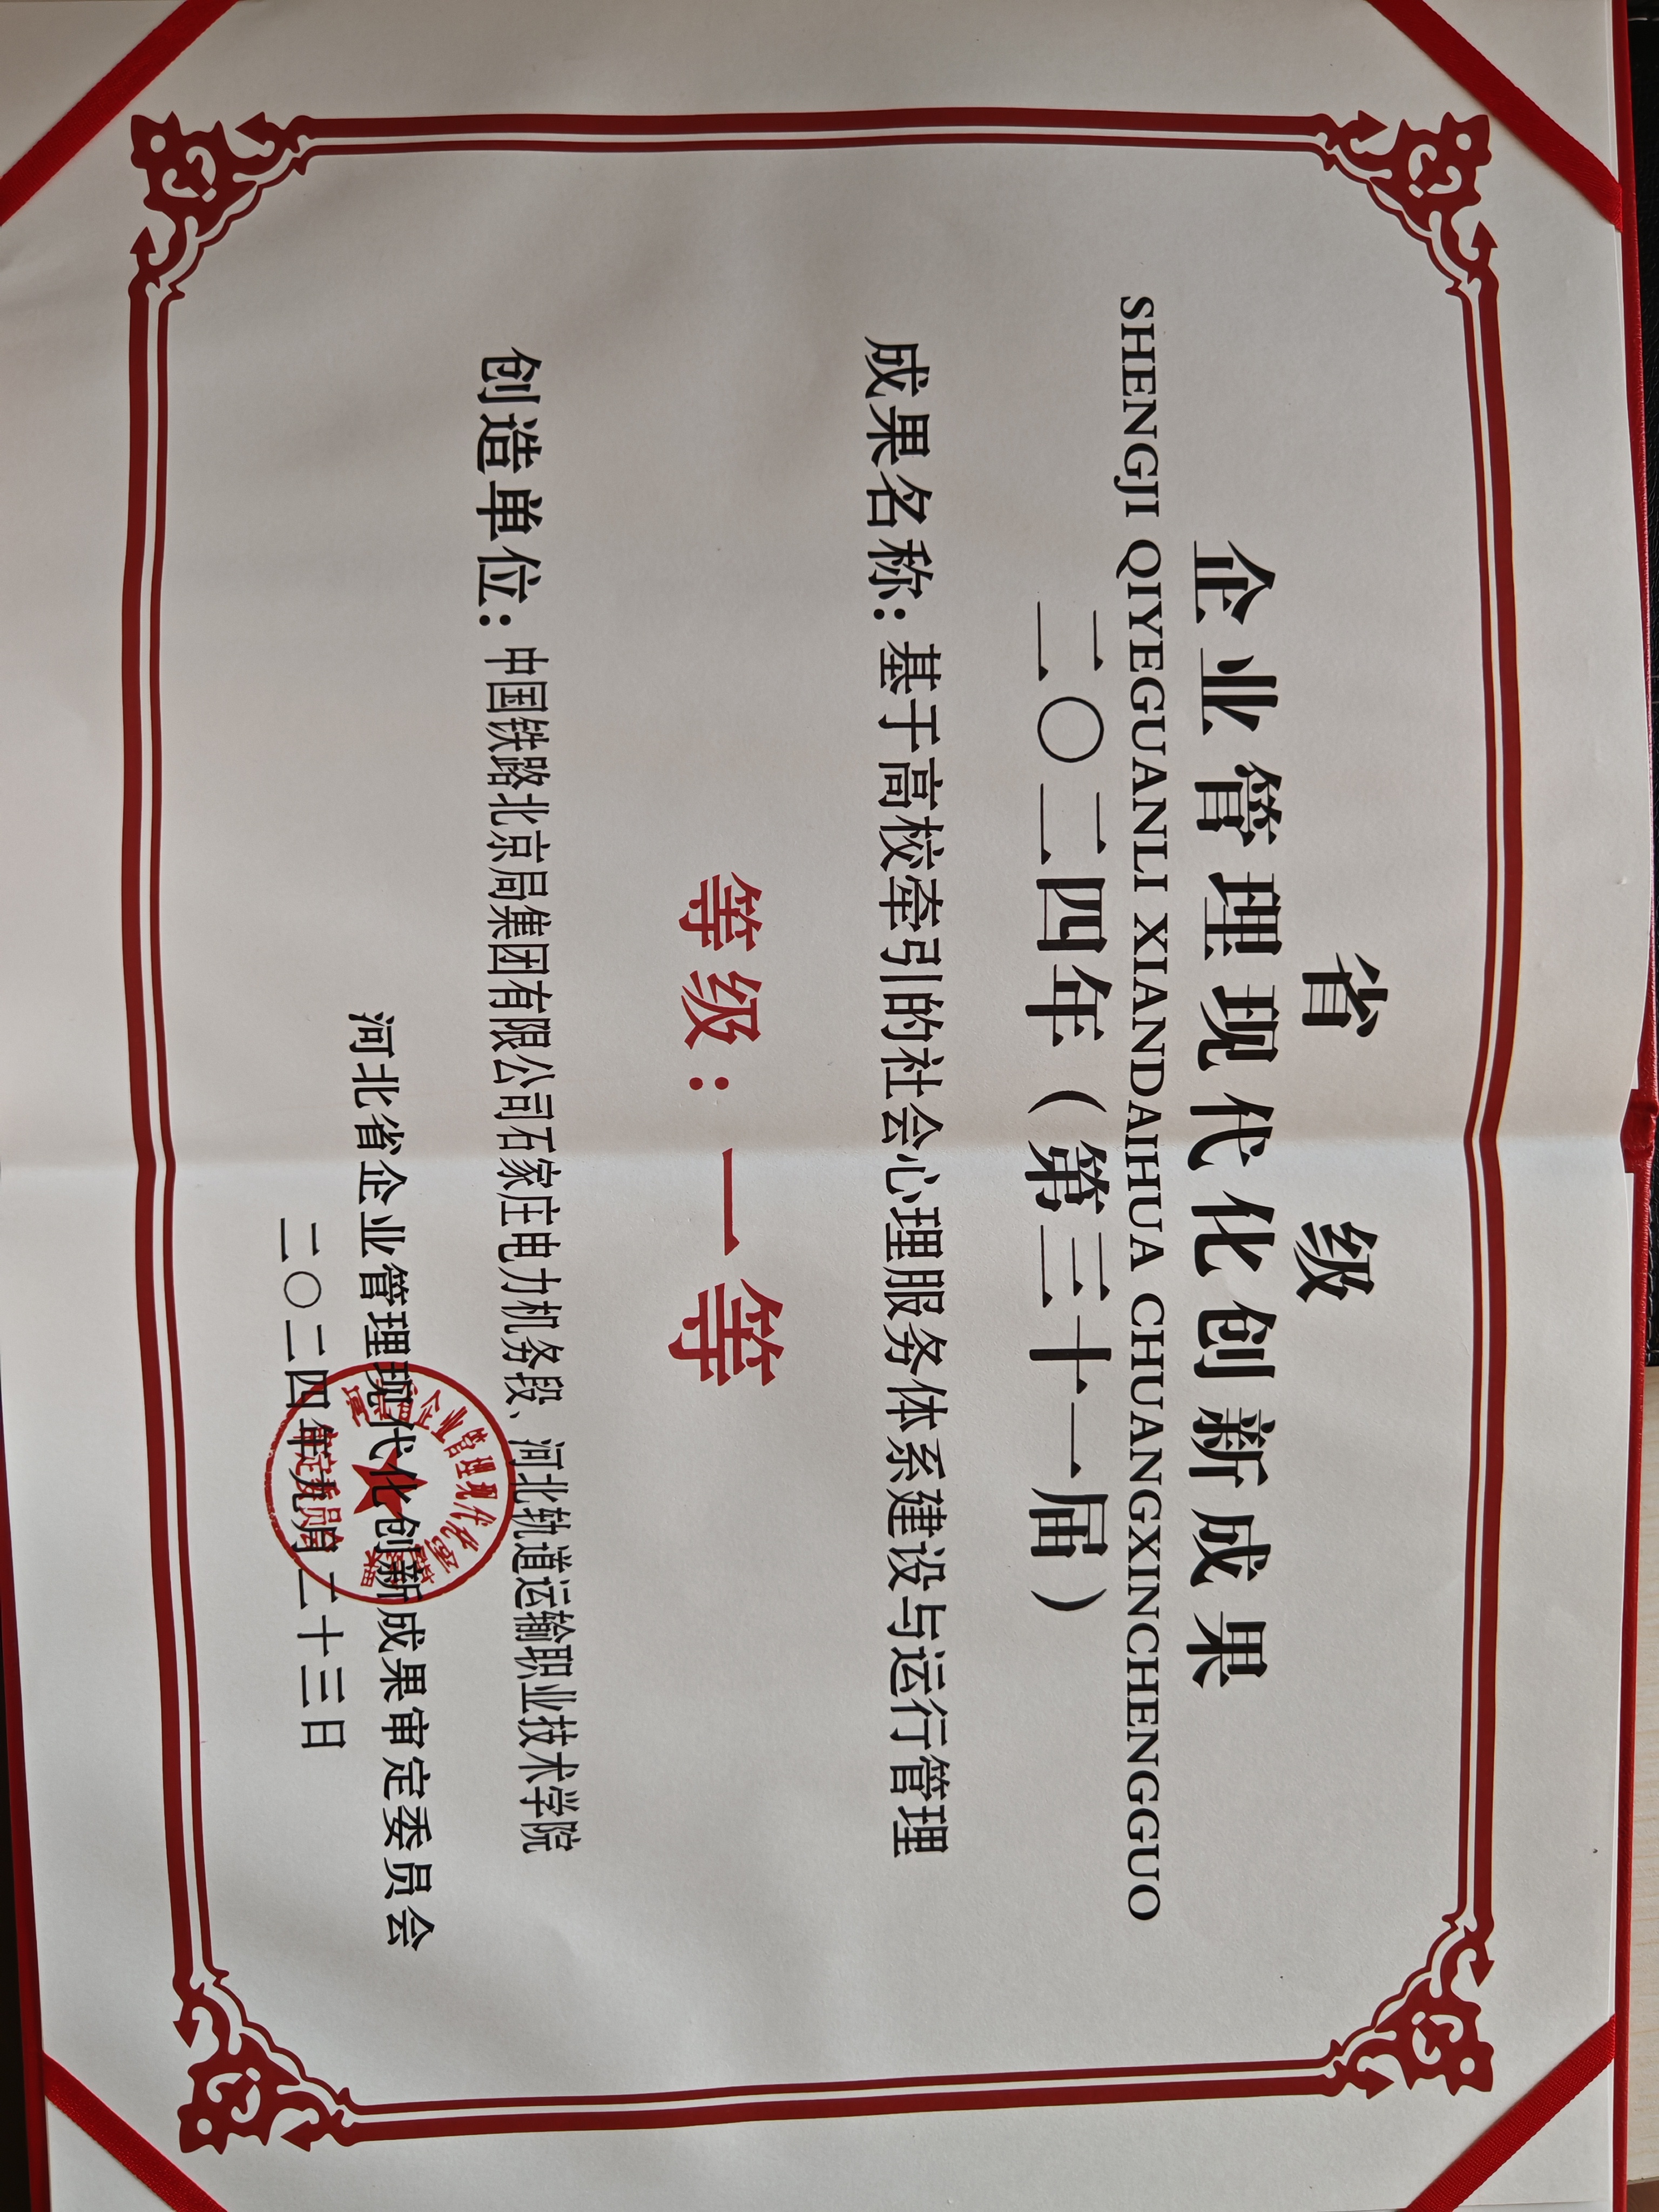 省级
企业管理现代化创新成果
SHENGJI QIYEGUANLI XIANDAIHUA CHUANGXINCHENGGUO
二〇二四年（第三十一届）
成果名称：基于高校牵引的社会心理服务体系建设与运行管理
等级：一等
创造单位：中国铁路北京局集团有限公司石家庄电力机务段、河北轨道运输职业技术学院
河北省企业管理现代化创新成果审定委员会
二〇二四年九月二十三日
企业管理现代化
审定委员会